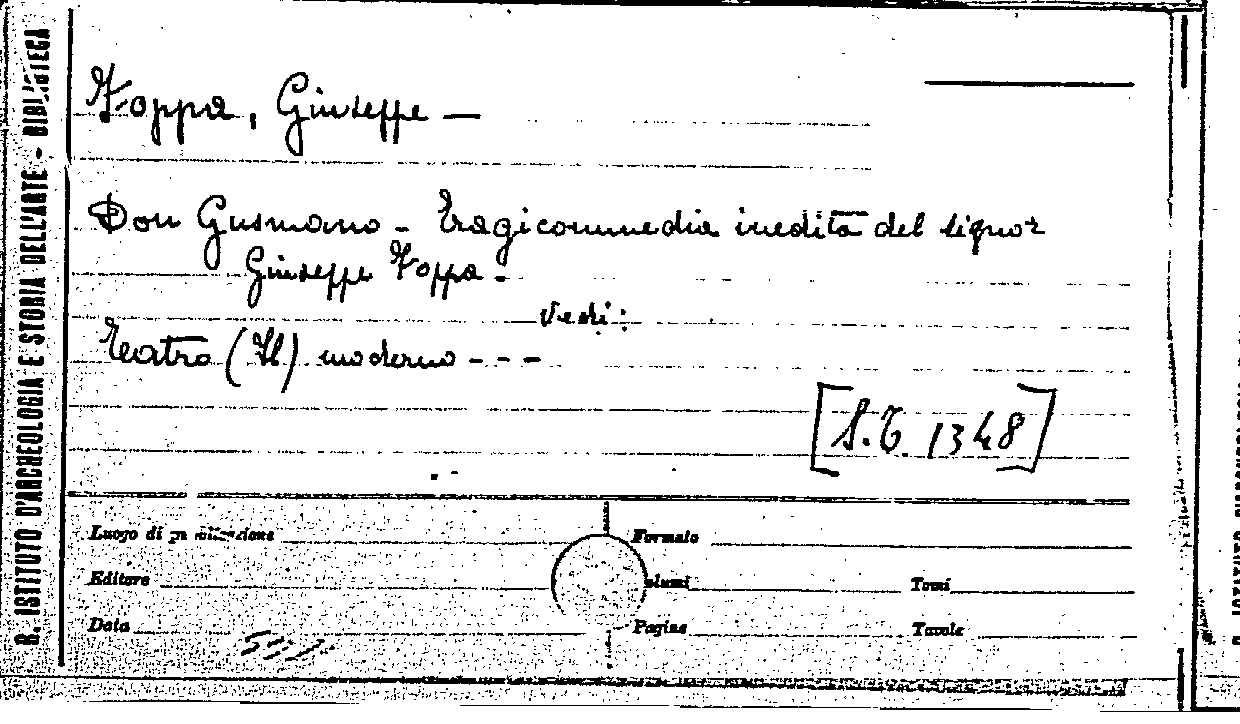 R. ISTITUTO D'ARCHEOLOGIA E STORIA DELL'ARTE - BIBLIOTECA
Foppa, Giuseppe —
Don Gusmano - Tragicommedia inedita del signor
Giuseppe Foppa -
Vedi:
Teatro (Il) moderno - - -
[S.T. 1348]
Luogo di pubblicazione
Formato
Editore
Volumi
Tomi
Data
Pagine
Tavole